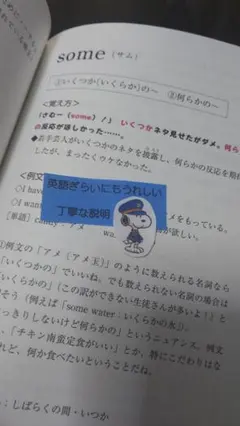 some [サム]
①いくつか(いくらか)の〜 ②何らかの〜
〈覚え方〉
「さむー (some) ！」 いくつかネタ見せたがダメ。何らか
の反応が欲しかった……。
◆若手芸人がいくつかのネタを披露し、何らかの反応を期
したが、まったくウケなかった。
〈例文
英語ぎらいにもうれしい
丁寧な説明
①I ha
メをもっている。
②I wa
が欲しい。
[単語] candy：アメ wa
①例文の「アメ（アメ玉）」のように数えられる名詞なら
いくつかの」でいいね。でも数えられない名詞の場合は
いくらか」（この訳ができない生徒さんが多いよ！）と
そう（例えば「some water：いくらかの水」）。
っきりしないけど何らかの」というニュアンス。例文
、「チキン南蛮定食がいい」とか、特にこだわりはな
れど、何か食べたいということだね。
：しばらくの間・いつか